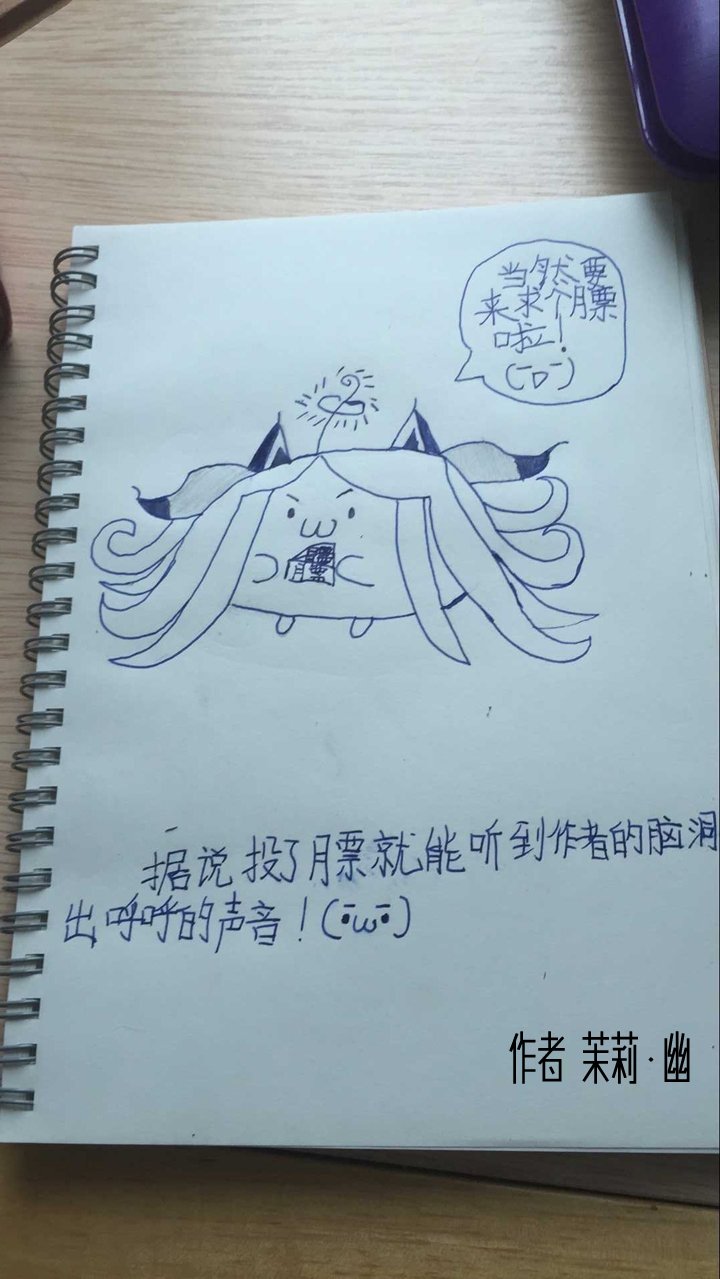 当然要
来求个膘
啦！
(￣ᗜ￣)
膘
据说投了膘就能听到作者的脑洞
出呼呼的声音！(•̄ω•̄)
作者 茉莉·幽